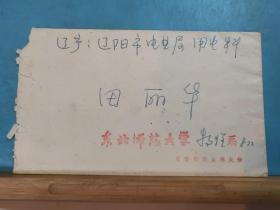 辽宁：辽阳市电业局 用电科
田丽华
东北师范大学 物理系